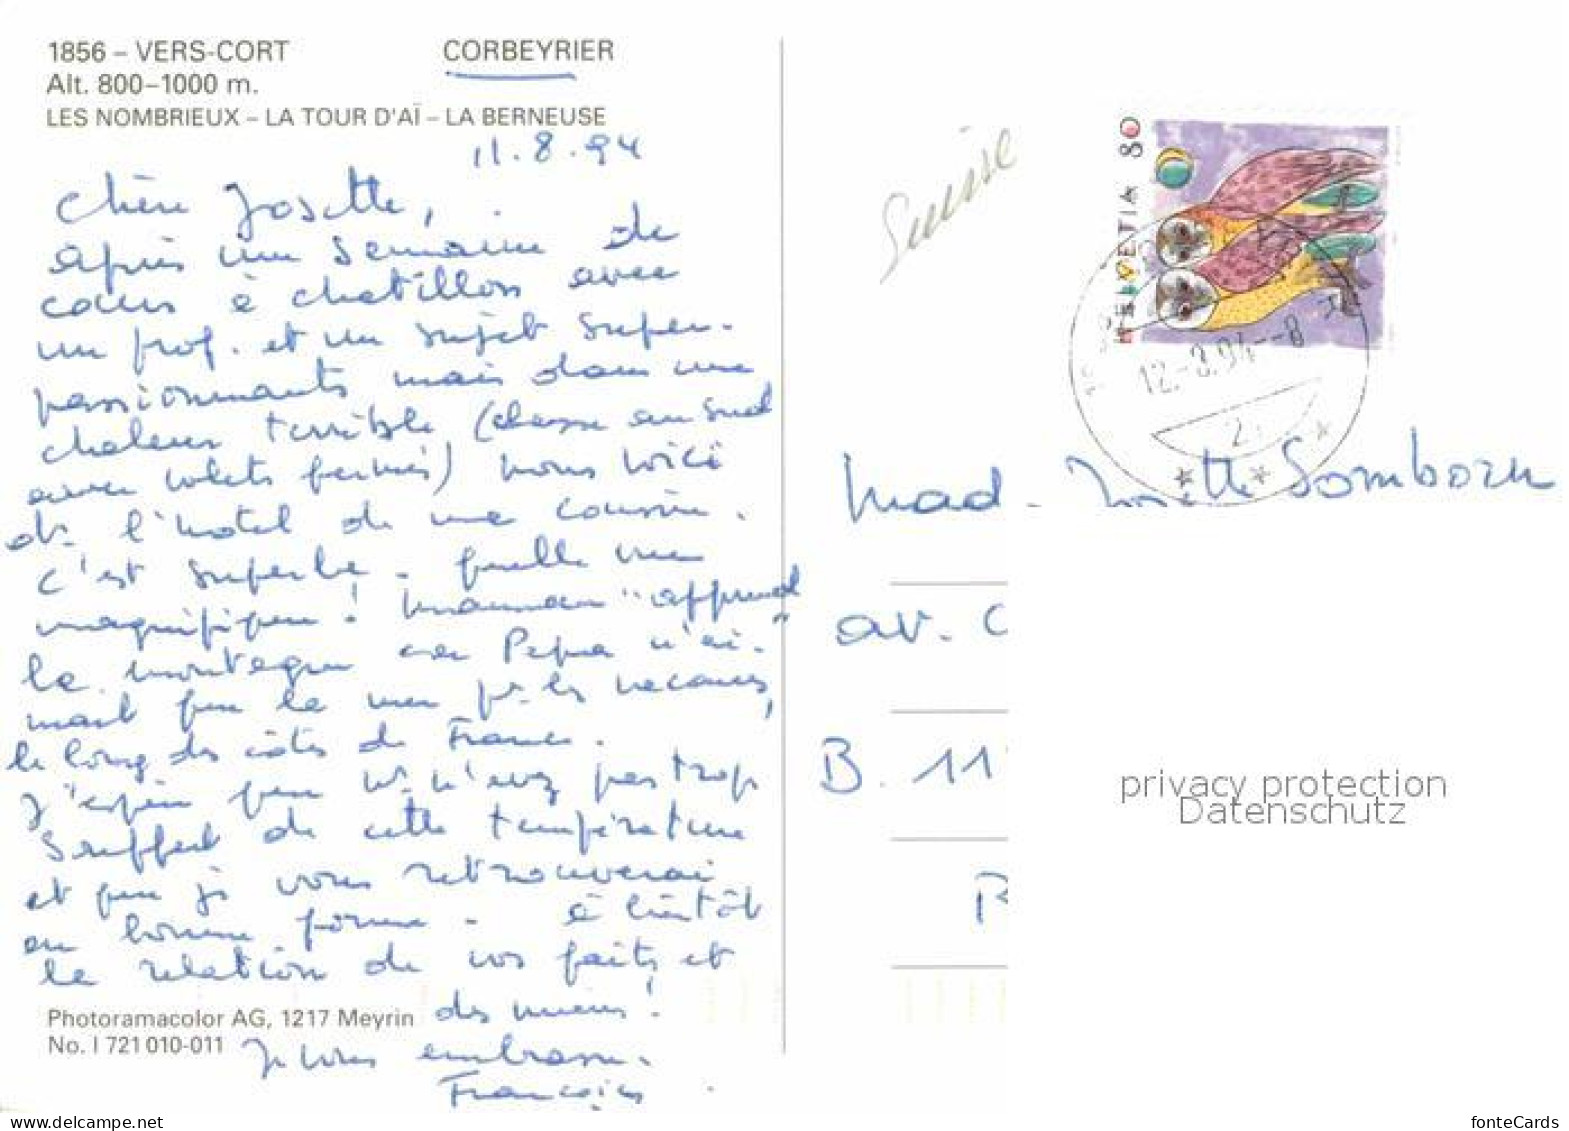 1856 – VERS-CORT CORBEYRIER
Alt. 800–1000 m.
LES NOMBRIEUX – LA TOUR D'AÏ – LA BERNEUSE
11.8.94
Chère Josette,
après une semaine de
cours à Chatillon avec
un prof. et un sujet super-
passionnants mais dans une
chaleur terrible (classe au sud
avec volets fermés) nous voici
ds. l'hotel de ma cousine.
C'est superbe. quelle vue
magnifique! Maman "apprend
la montagne" car Pepa n'ai-
mait que la mer pr. les vacances,
le long des côtes de France.
J'espère que vs. n'avez pas trop
souffert de cette température
et que je vous retrouverai
en bonne forme. à bientôt
la relation de vos faits et
des miens!
Je vous embrasse.
Françoise
Photoramacolor AG, 1217 Meyrin
No. I 721 010-011
Suisse
HELVETIA 80
12.-8.94--8
2
Mad. Josette Somborn
av. C
B. 11
privacy protection
Datenschutz
www.delcampe.net
fonteCards